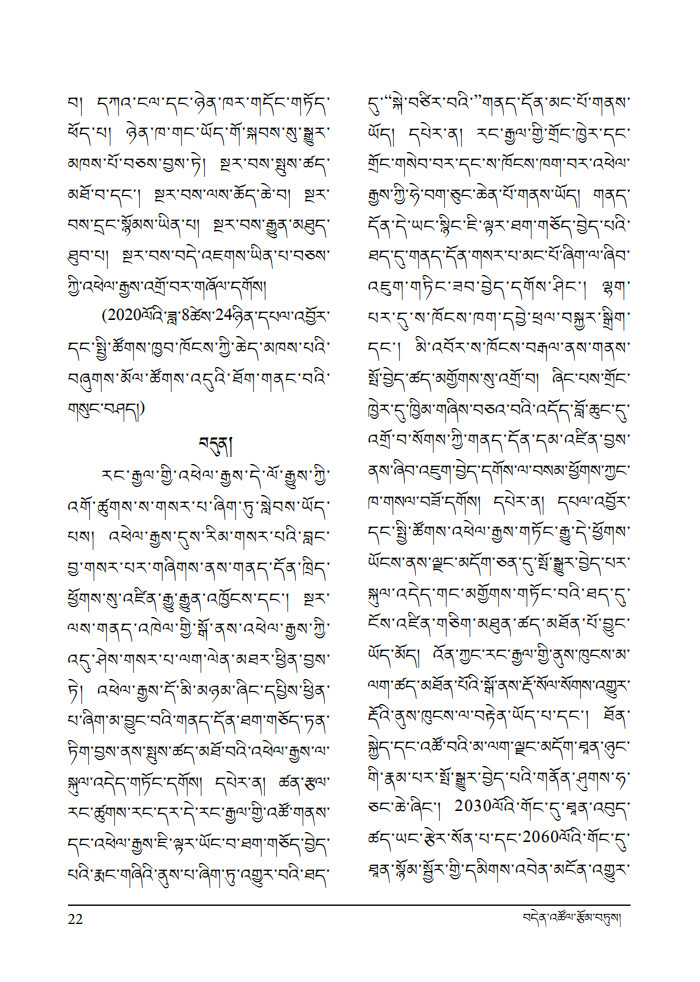 བ། དཀའ་ངལ་དང་ཉེན་ཁར་གདོང་གཏོད་
ཕོད་པ། ཉེན་ཁ་གང་ཡོད་གོ་སྐབས་སུ་སྒྱུར་
མཁས་པོ་བཅས་བྱས་ཏེ། སྔར་བས་སྤུས་ཚད་
མཐོ་བ་དང་། སྔར་བས་ལས་ཆོད་ཆེ་བ། སྔར་
བས་དྲང་སྙོམས་ཡིན་པ། སྔར་བས་རྒྱུན་མཐུད་
ཐུབ་པ། སྔར་བས་བདེ་འཇགས་ཡིན་པ་བཅས་
ཀྱི་འཕེལ་རྒྱས་འགྲོ་བར་གཞོལ་དགོས།
(2020ལོའི་ཟླ་8ཚེས་24ཉིན་དཔལ་འབྱོར་
དང་སྤྱི་ཚོགས་ཁྱབ་ཁོངས་ཀྱི་ཆེད་མཁས་པའི་
བཞུགས་མོལ་ཚོགས་འདུའི་ཐོག་གནང་བའི་
གསུང་བཤད།)
བདུན།
རང་རྒྱལ་གྱི་འཕེལ་རྒྱས་དེ་ལོ་རྒྱུས་ཀྱི་
འགོ་ཚུགས་ས་གསར་པ་ཞིག་ཏུ་སླེབས་ཡོད་
པས། འཕེལ་རྒྱས་དུས་རིམ་གསར་པའི་བླང་
བྱ་གསར་པར་གཞིགས་ནས་གནད་དོན་ཁྲིད་
ཕྱོགས་སུ་འཛིན་རྒྱུ་རྒྱུན་འཁྱོངས་དང་། སྔར་
ལས་གནད་འཁེལ་གྱི་སྒོ་ནས་འཕེལ་རྒྱས་ཀྱི་
འདུ་ཤེས་གསར་པ་ལག་ལེན་མཐར་ཕྱིན་བྱས་
ཏེ། འཕེལ་རྒྱས་དོ་མི་མཉམ་ཞིང་དཔྱིས་ཕྱིན་
པ་ཞིག་མ་བྱུང་བའི་གནད་དོན་ཐག་གཅོད་ཏན་
ཏིག་བྱས་ནས་སྤུས་ཚད་མཐོ་བའི་འཕེལ་རྒྱས་ལ་
སྐུལ་འདེད་གཏོང་དགོས། དཔེར་ན། ཚན་རྩལ་
རང་ཚུགས་རང་དར་དེ་རང་རྒྱལ་གྱི་འཚོ་གནས་
དང་འཕེལ་རྒྱས་ཇི་ལྟར་ཡོང་བ་ཐག་གཅོད་བྱེད་
པའི་རྨང་གཞིའི་ནུས་པ་ཞིག་ཏུ་འགྱུར་བའི་ཐད་
དུ་“སྐེ་བཙིར་བའི་”གནད་དོན་མང་པོ་གནས་
ཡོད། དཔེར་ན། རང་རྒྱལ་གྱི་གྲོང་ཁྱེར་དང་
གྲོང་གསེབ་བར་དང་ས་ཁོངས་ཁག་བར་འཕེལ་
རྒྱས་ཀྱི་ཧེ་བག་ཅུང་ཆེན་པོ་གནས་ཡོད། གནད་
དོན་དེ་ཡང་སྙིང་ཇི་ལྟར་ཐག་གཅོད་བྱེད་པའི་
ཐད་དུ་གནད་དོན་གསར་པ་མང་པོ་ཞིག་ལ་ཞིབ་
འཇུག་གཏིང་ཟབ་བྱེད་དགོས་ཤིང་། ལྷག་
པར་དུ་ས་ཁོངས་ཁག་དབྱེ་ཕྲལ་བསྐྱར་སྒྲིག་
དང་། མི་འབོར་ས་ཁོངས་བརྒལ་ནས་གནས་
སྤོ་བྱེད་ཚད་མགྱོགས་སུ་འགྲོ་བ། ཞིང་པས་གྲོང་
ཁྱེར་དུ་ཁྱིམ་གཞིས་བཅའ་བའི་འདོད་བློ་ཆུང་དུ་
འགྲོ་བ་སོགས་ཀྱི་གནད་དོན་དམ་འཛིན་བྱས་
ནས་ཞིབ་འཇུག་བྱེད་དགོས་ལ་བསམ་ཕྱོགས་ཀྱང་
ཁ་གསལ་བཟོ་དགོས། དཔེར་ན། དཔལ་འབྱོར་
དང་སྤྱི་ཚོགས་འཕེལ་རྒྱས་གཏོང་རྒྱུ་དེ་ཕྱོགས་
ཡོངས་ནས་ལྗང་མདོག་ཅན་དུ་སྤོ་སྒྱུར་བྱེད་པར་
སྐུལ་འདེད་གང་མགྱོགས་གཏོང་བའི་ཐད་དུ་
ངོས་འཛིན་གཅིག་མཐུན་ཚད་མཐོན་པོ་བྱུང་
ཡོད་མོད། འོན་ཀྱང་རང་རྒྱལ་གྱི་ནུས་ཁུངས་མ་
ལག་ཚད་མཐོན་པོའི་སྒོ་ནས་རྡོ་སོལ་སོགས་འགྱུར་
རྡོའི་ནུས་ཁུངས་ལ་བརྟེན་ཡོད་པ་དང་། ཐོན་
སྐྱེད་དང་འཚོ་བའི་མ་ལག་ལྗང་མདོག་ཐན་ཉུང་
གི་རྣམ་པར་སྤོ་སྒྱུར་བྱེད་པའི་གནོན་ཤུགས་ཧ་
ཅང་ཆེ་ཞིང་། 2030ལོའི་གོང་དུ་ཐན་འབུད་
ཚད་ཡང་རྩེར་སོན་པ་དང་2060ལོའི་གོང་དུ་
ཐན་སྙོམ་སྦྱོར་གྱི་དམིགས་འབེན་མངོན་འགྱུར་
22
བདེན་འཚོལ་རྩོམ་བཏུས།